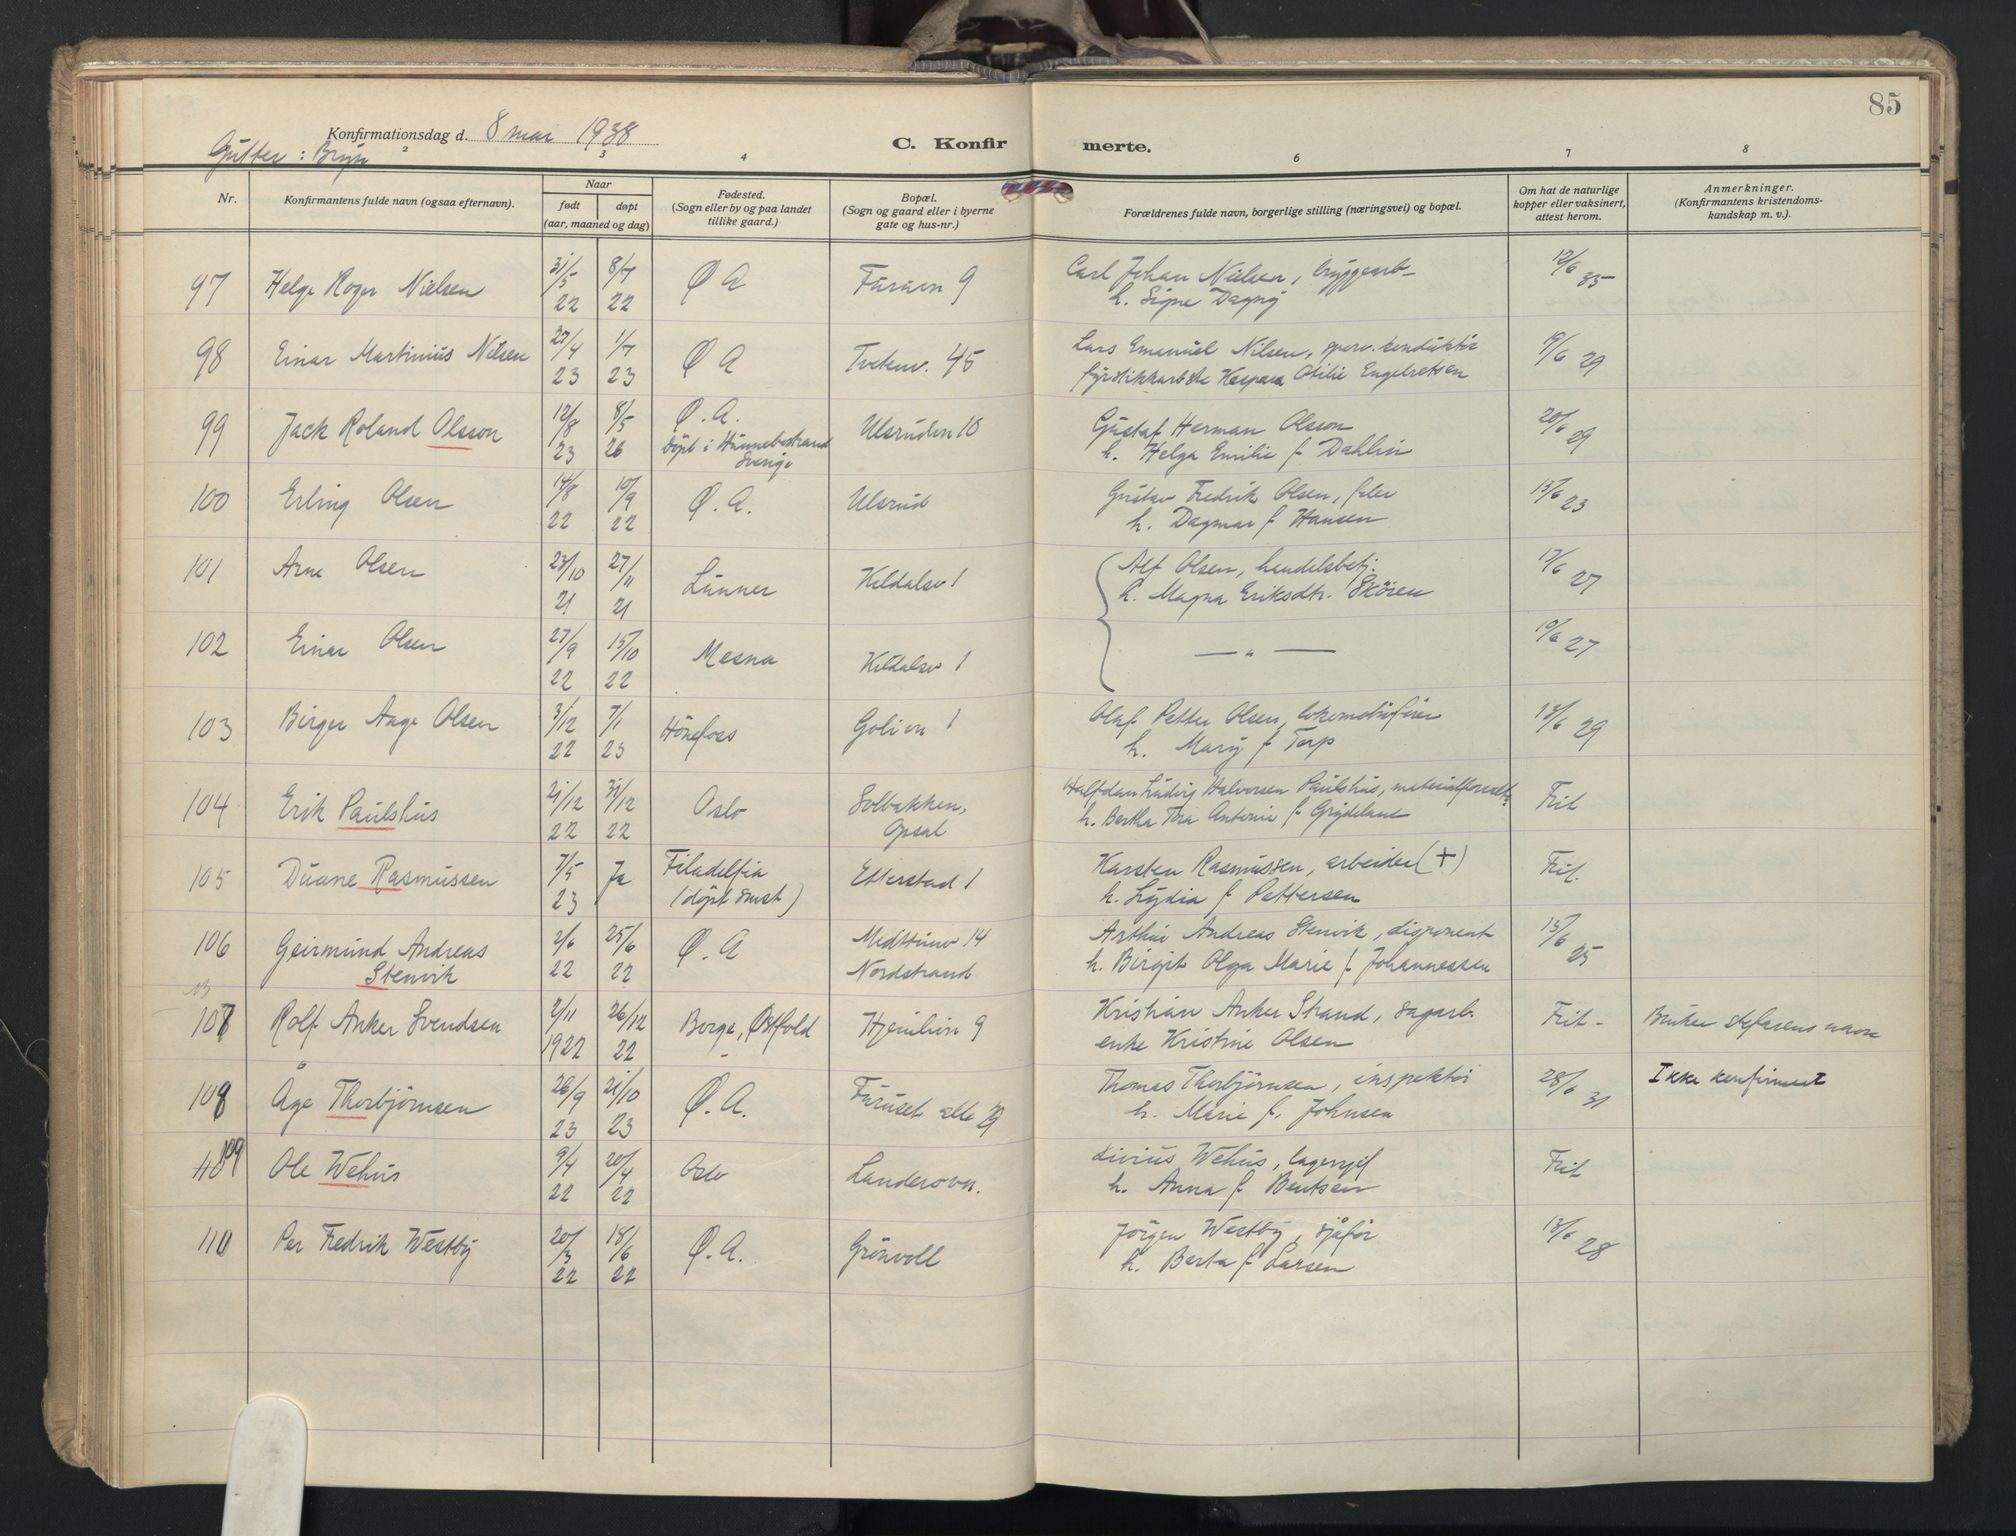 85
Konfirmationsdag d. 8 mai 1938
C. Konfirmerte.
Gutter: Bryn
2 3 4 6 7 8
Nr. Konfirmantens fulde navn (ogsaa efternavn). Naar født døpt (aar, maaned og dag) Fødested. (Sogn eller by og paa landet tillike gaard.) Bopæl. (Sogn og gaard eller i byerne gate og hus-nr.) Forældrenes fulde navn, borgerlige stilling (næringsvei) og bopæl. Om hat de naturlige kopper eller vaksinert, attest herom. Anmerkninger. (Konfirmantens kristendoms-kundskap m. v.).
97 Helge Roger Nielsen 31/5 22 8/7 22 Ø A Furuen 9 Carl Johan Nielsen, bryggearb.
h. Signe Dagny 12/6 35
98 Einar Martinius Nilsen 27/4 23 1/7 23 Ø A Tvetenv. 45 Lars Emanuel Nilsen, sporv. konduktør
fyrstikkarb.ske Kaspara Otilie Engebretsen 19/6 29
99 Jack Roland Olsson 12/8 23 8/5 26 Ø. A.
døpt i Hunnebostrand Sverige Ulsrudvn 10 Gustaf Herman Olsson
h. Helga Emilie f. Dahlin 20/6 29
100 Erling Olsen 14/8 22 10/9 22 Ø. A. Ulsrud Gustav Fredrik Olsen, filer
h. Dagmar f Hansen 15/6 23
101 Arne Olsen 23/10 21 27/11 21 Lunner Kildalsv 1 Alf Olsen, handelsbetj.
h. Magna Eriksdtr. Skören 17/6 27
102 Einar Olsen 27/9 22 15/10 22 Mesna Kildalsv 1 — „ — 10/6 27
103 Birger Aage Olsen 3/12 22 7/1 23 Hönefoss Golien 1 Olaf Petter Olsen, lokomotivfører
h. Mary f Torp 18/6 29
104 Erik Paulshus 21/12 22 31/12 22 Oslo Solbakken, Opsal Halfdan Ludvig Halvorsen Paulshus, materialforvalt.
h. Bertha Tora Antonie f. Grydeland Frit
105 Duane Rasmussen 7/5 23 Ja Filadelfia
(døpt smst) Etterstad 1 Karsten Rasmussen, arbeider (+)
h. Lydia f Pettersen Frit.
106 Geirmund Andreas
Stenvik 2/6 22 25/6 22 Ø. A Midttunv 14
Nordstrand Arthur Andreas Stenvik, disponent
h. Birgit Olga Marie f Johannessen 15/6 25
107 Rolf Anker Svendsen 2/11 1922 26/12 22 Borge, Østfold Hjemlivn 9 Kristian Anker Strand, sagarb.
enke Kristine Olsen Frit - Bruker stefarens navn
108 Åge Thorbjörnsen 26/9 23 21/10 23 Ø. A. Furuset alle 29 Thomas Thorbjörnsen, inspektør
h. Marie f. Johnsen 28/6 31 Ikke konfirmert
109 Ole Wehus 9/4 22 20/4 22 Oslo Landerovn. Livius Wehus, lagersjef
h. Anna f Bentsen Frit
110 Per Fredrik Westby 20/3 22 18/6 22 Ø. A. Grönvoll Jörgen Westby, sjåfør
h. Berta f Larsen 18/6 28